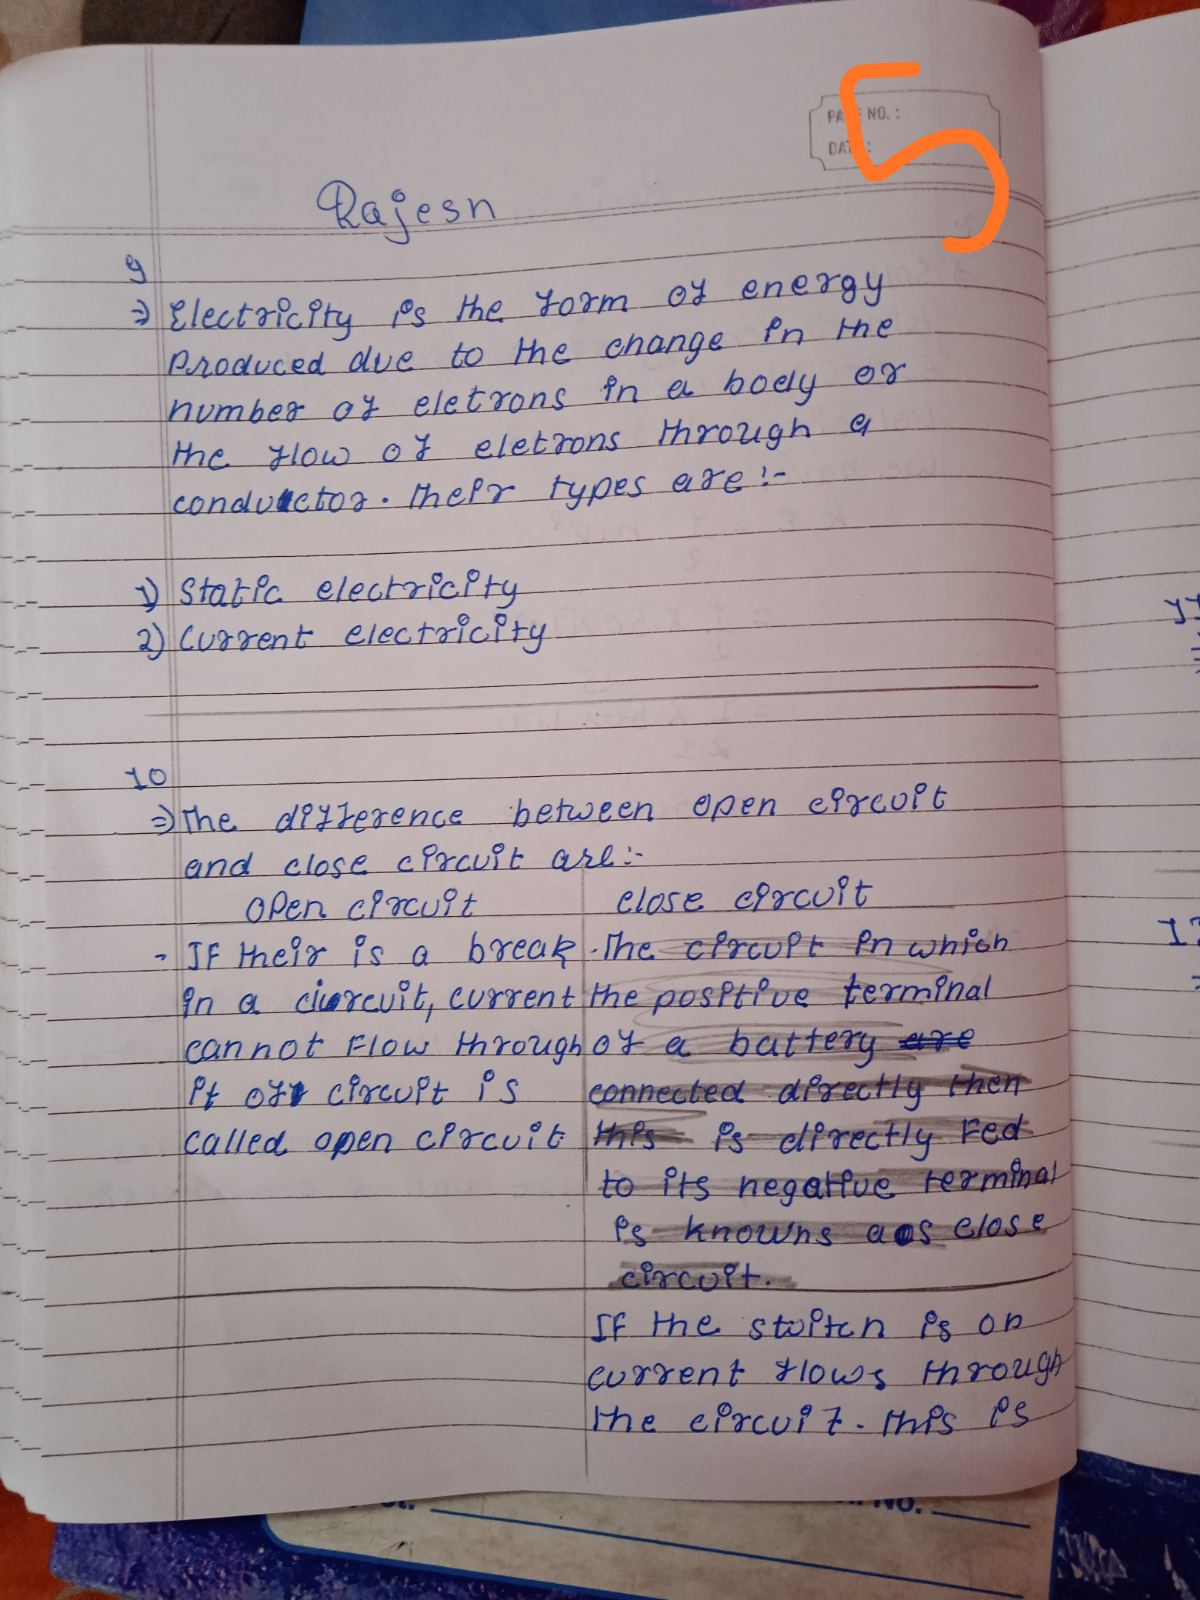 PAGE NO. :
DATE :
5
Rajesh
9
⇒ Electricity is the form of energy
produced due to the change in the
number of eletrons in a body or
the flow of eletrons through a
conductor. their types are :-
1) Static electricity
2) Current electricity
10
⇒ The difference between open circuit
and close circuit are :-
open circuit
- If their is a break
in a circuit, current
cannot flow through
it circuit is
called open circuit
close circuit
- The circuit in which
the positive terminal
of a battery are
connected directly then
this is directly fed
to its negative terminal
is knowns as close
circuit.
If the switch is on
current flows through
the circuit. this is
No.